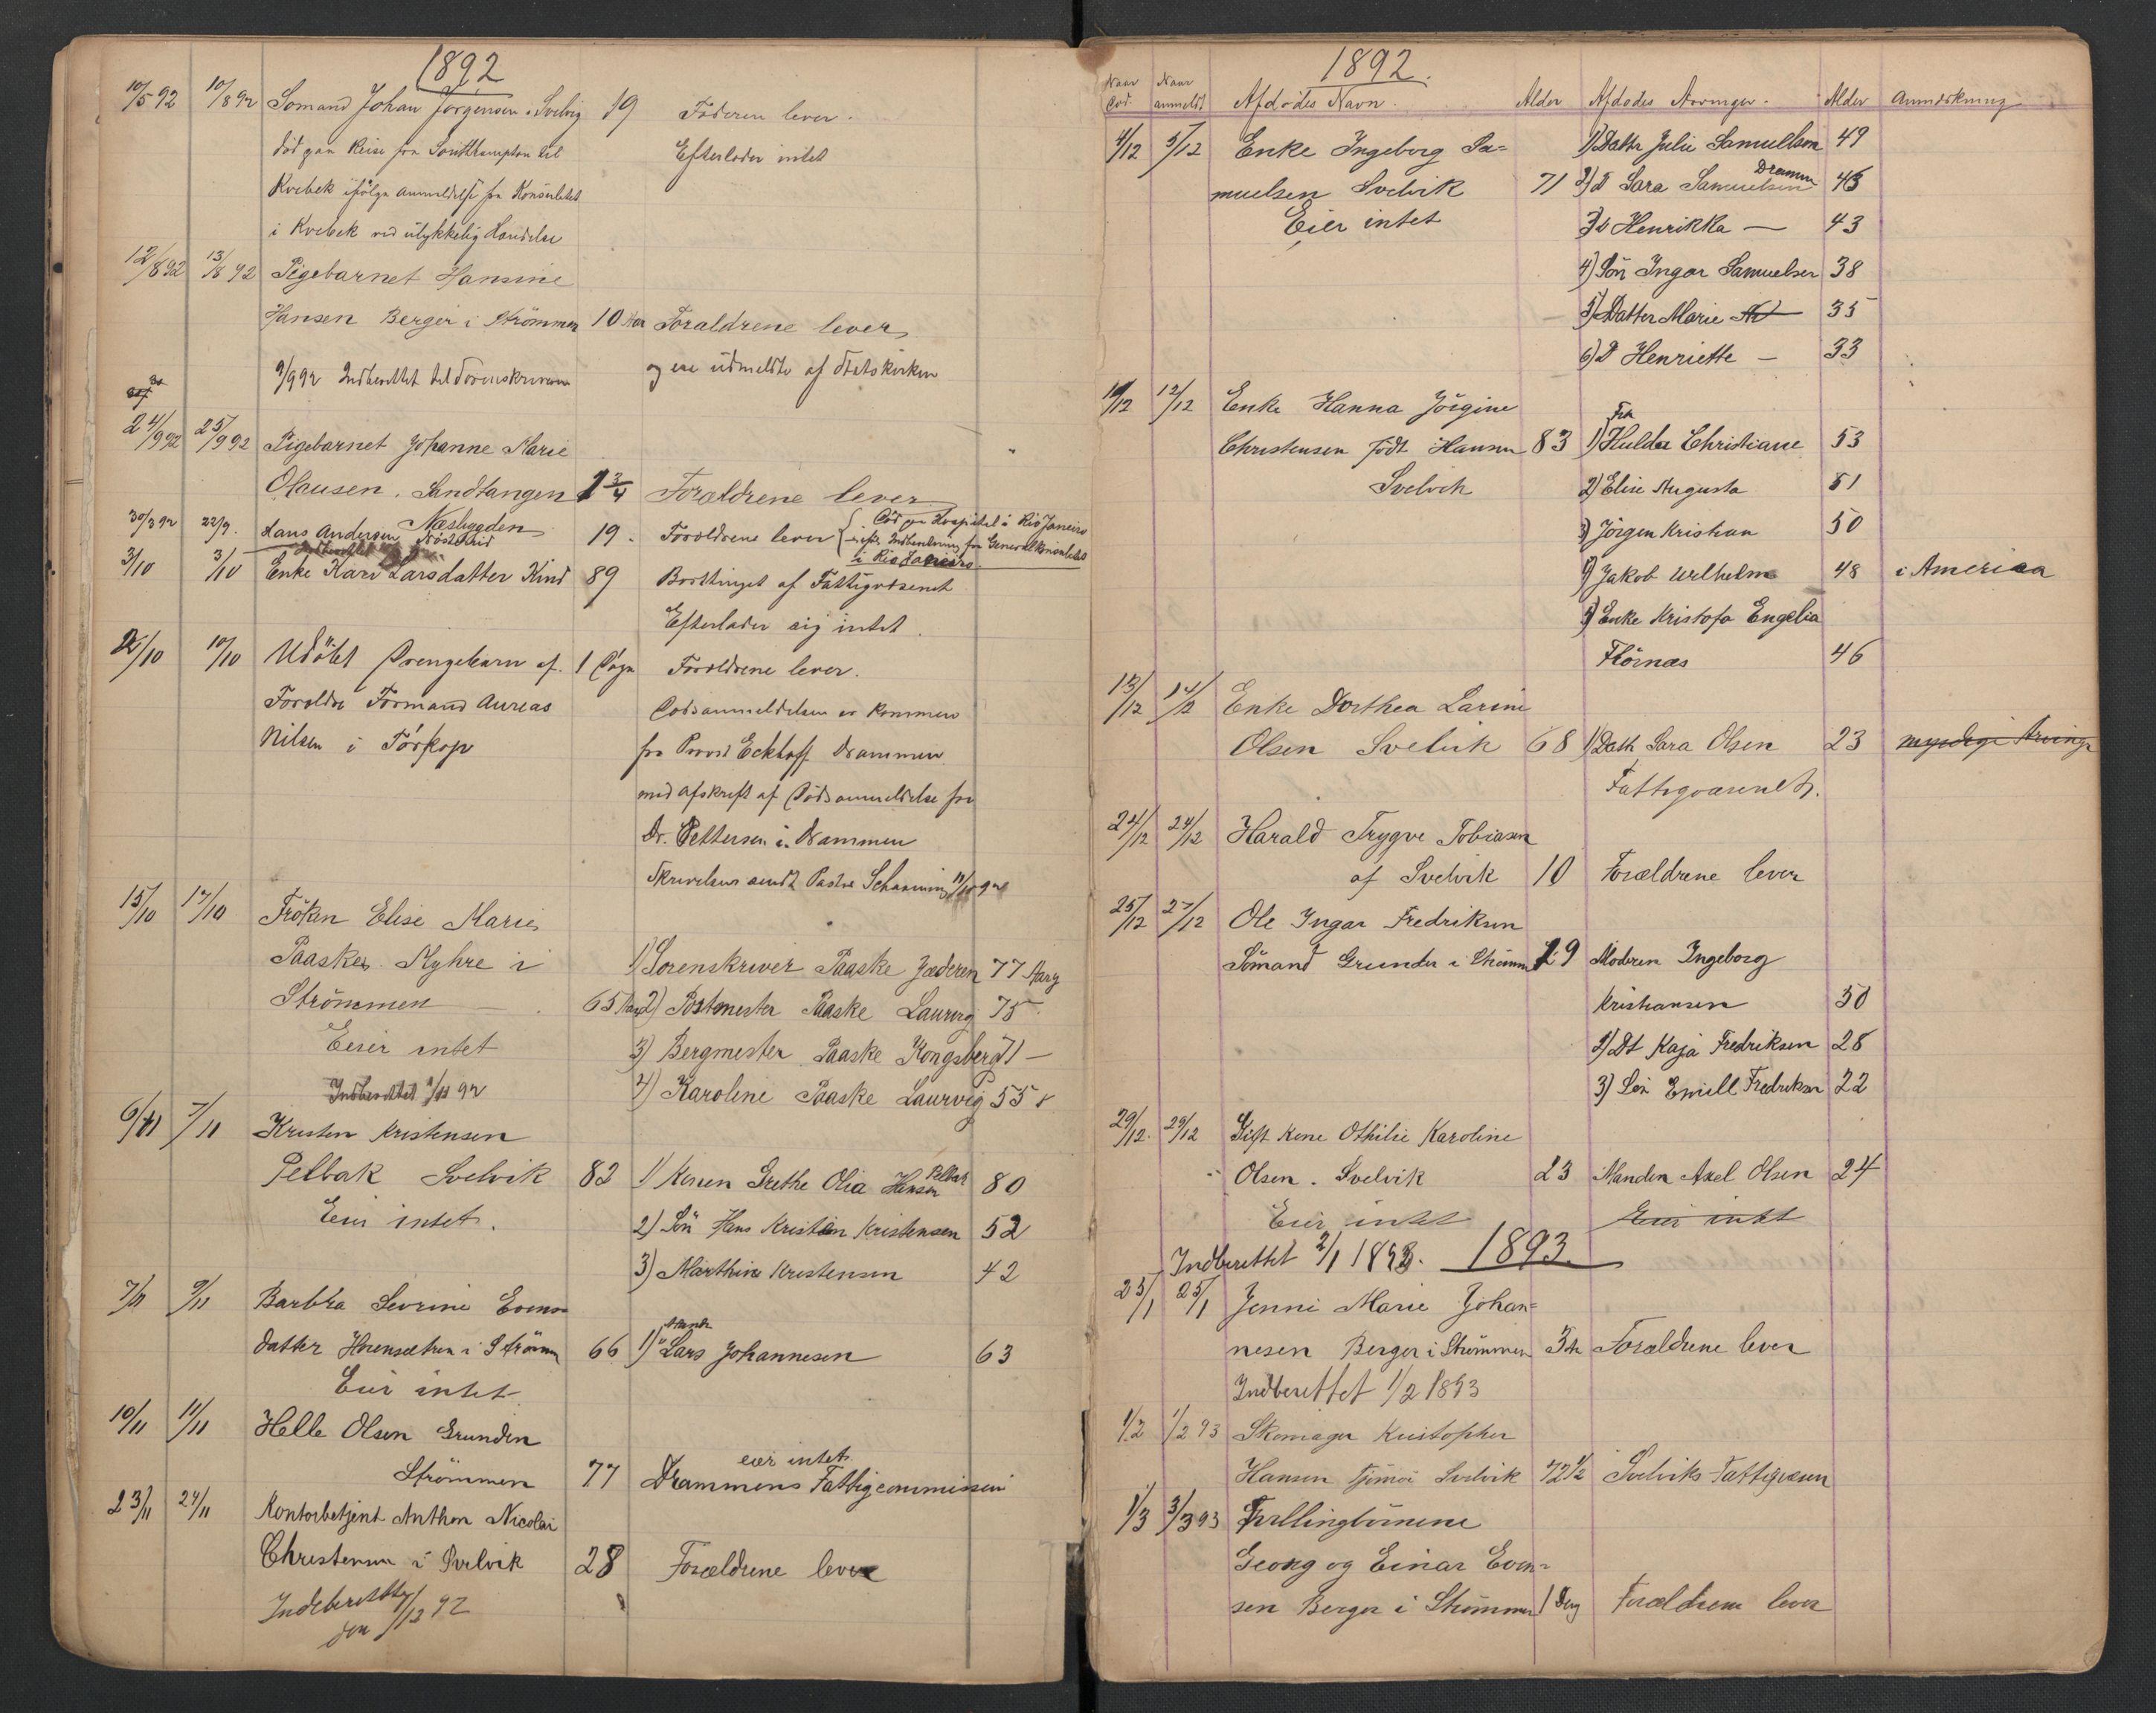 1892
10/5 92 10/8 92 Sømand Johan Jørgensen i Svelvig 19 Faderen lever.
død paa Reise fra Southhampton til Efterlader intet
Kvebek ifølge anmeldelse fra Konsulatet
i Kvebek ved ulykkelig Hændelse
12/8 92 13/8 92 Pigebarnet Hansine
Hansen Berger i Strömmen 10 Aar Foraldrene lever
9/9 92 Indberettet til Sorenskriveren og ere udmeldte af Statskirken
24/9 92 25/9 92 Pigebarnet Johanne Marie
Olausen. Sandtangen 1 3/4 Forældrene lever
Næsbygden
30/3 92 22/9. Hans Andersen 19. Foroldrene lever { Död paa Hospital i Rio Janeiro
efter Indberetning fra Generalkonsulatet
i Rio Janeiro.
3/10 3/10 Enke Kari Larsdatter Kind 89 Bortlinget af Fattigvæsenet
Efterlader sig intet.
/10 10/10 Udöbt Drengebarn af 1 Dögn Foroldrene lever.
Foroldre Formand Aureas Dødsanmeldelsen er kommen
Nilsen i Törkop fra Provst Eckhoff Drammen
med afskrift af Dödsanmeldelse fra
Dr. Pettersen i Drammen
Skrivelsen sendt Pastor Schanning
15/10 17/10 Fröken Elise Marie
Paaske Myhre i 1) Sorenskriver Paaske Jæderen 77 Aar
Strömmen 65 Aar 2) Postmester Paaske Laurvig 75
Eier intet 3) Bergmester Paaske Kongsberg 71 —
Indberettet 1/11 92 4) Karoline Paaske Laurvig 55
6/11 7/11 Kristen Kristensen
Pelbak Svelvik 82 1) Konen Grethe Olia Hansen Pelbak 80
Eier intet. 2) Sön Hans Kristian Kristensen 52
3) Marthin Kristensen 42
7/11 9/11 Barbra Sevrine Evens
datter Horensætren i Strömm 66 1) Manden Lars Johannesen 63
Eier intet
10/11 11/11 Helle Olsen Grunden
eier intet
Strömmen 77 Drammens Fattigcommissin
23/11 24/11 Kontorbetjent Anthon Nicolai
Christensen i Svelvik 28 Forældrene lever
Indeberettet
den 1/12 92
1892.
Naar Död. Naar anmeldt Afdödes Navn. Alder Afdödes Arvinger. Alder Anmerkning
4/12 5/12 Enke Ingeborg Sa= 1) Datter Julie Samuelsen 49
muelsen Svelvik 71 2) D Sara Samuelsen Drammen 45
Eier intet 3) D Henrikka — 43
4) Sön Ingar Samuelsen 38
5) Datter Marie 35
6) D Henriette — 33
10/12 12/12 Enke Hanna Jörgine
Christensen Födt Hansen 83 1) Frk Hulda Christiane 53
Svelvik 2) Elise Augusta 51
3) Jörgen Kristian 50
4) Jakob Wilhelm 48 i America
5) Enke Kristofa Engelia
Flörnæs 46
13/12 14/12 Enke Dorthea Larine
Olsen Svelvik 68 1) Datt Sara Olsen 23 myndige Arvinge
Fattigvæsenet.
24/12 24/12 Harald Trygve Tobiasen
af Svelvik 10 Forældrene lever
25/12 27/12 Ole Ingar Fredriksen
Sömand Grunden i Strömm 19 Moderen Ingeborg
Kristiansen 50
2) Dt Kaja Fredriksen 28
3) Sön Emill Fredriksen 22
29/12. 29/12 Gift Kone Othilie Karoline
Olsen. Svelvik 23 Manden Axel Olsen 24
Eier intet Eier intet
Indberettet 2/1 1893. 1893.
25/1 25/1 Jenni Marie Johan=
nesen Berger i Strömmen Forældrene lever
Indberettet 1/2 1893
1/2 1/2 93 Skomager Kristopher
Hansen Svelvik 72 1/2 Svelviks Fattigvæsen
1/3 3/3 93 Tvillingbörnene
Georg og Einar Even=
sen Berger i Strömmen 1 Dag Forældrene lever